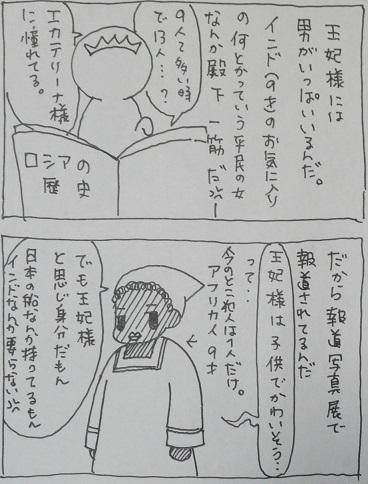 王妃様には
男がいっぱいいるんだ。
インド(9才)のお気に入り
の何とかっていう平民の女
なんか殿下一筋だ
9人で多い時
で13人…?
エカテリーナ様
に憧れてる。
ロシアの
歴史
だから報道写真展で
報道されてるんだ
って…
王妃様は子供でかわいそう…
今のとこ恋人は1人だけ。
アフリカ人9才
でも王妃様
と思じ身分だもん
日本の船なんか持ってるもん
インドなんか要らない